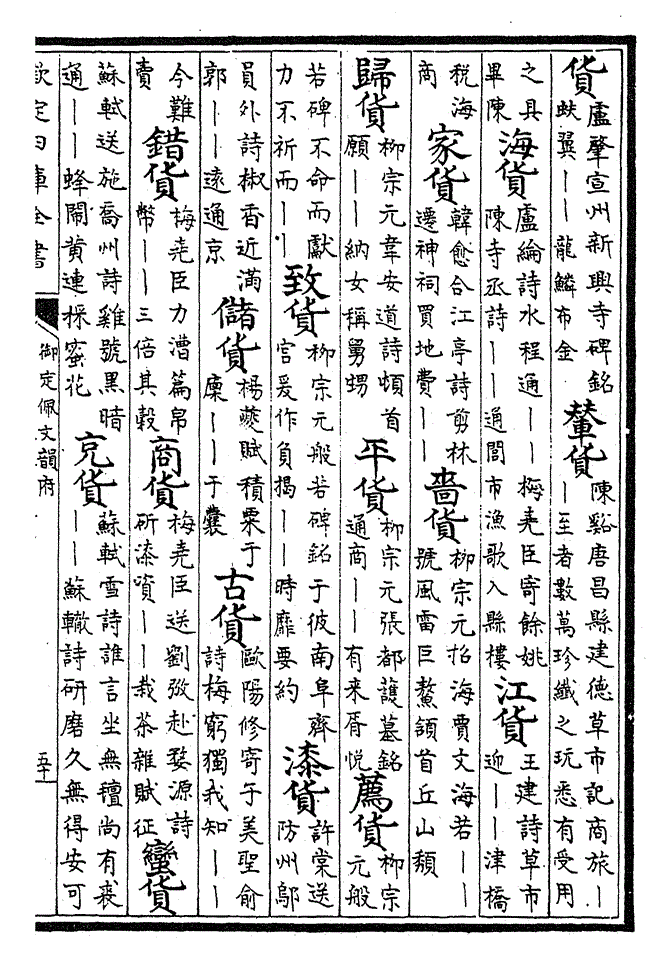 貨
盧肇宣州新興寺碑銘
蚨翼——龍鱗布金
輦貨
陳谿唐昌縣建德草市記商旅—
—至者數萬珍纖之玩悉有受用
之具
畢陳
海貨
盧綸詩水程通——梅堯臣寄餘姚
陳寺丞詩——通閭市漁歌入縣樓
江貨
王建詩草市
迎——津橋
税海
商
家貨
韓愈合江亭詩剪林
遷神祠買地費——
嗇貨
柳宗元招海賈文海若——
號風雷巨鰲頷首丘山頹
歸貨
柳宗元韋安道詩頓首
願——納女稱舅甥
平貨
柳宗元張都護墓銘
通商——有来胥悅
薦貨
柳宗
元般
若碑不命而獻
力不祈而——
致貨
柳宗元般若碑銘于彼南阜齊
宫爰作負揭——時靡要約
漆貨
許棠送
防州鄔
員外詩椒香近滿
郭——遠通京
儲貨
楊夔賦積粟于
廩——于囊
古貨
歐陽修寄于美聖俞
詩梅窮獨我知——
今難
賣
錯貨
梅堯臣力漕篇帛
幣——三倍其穀
商貨
梅堯臣送劉攽赴婺源詩
斫漆資——栽茶雜賦征
蠻貨
蘇軾送施喬州詩雞號黑暗
通——蜂鬧黄連採蜜花
充貨
蘇軾雪詩誰言坐無氊尚有裘
——蘇轍詩研磨久無得安可
欽定四庫全書
御定佩文韻府
五十